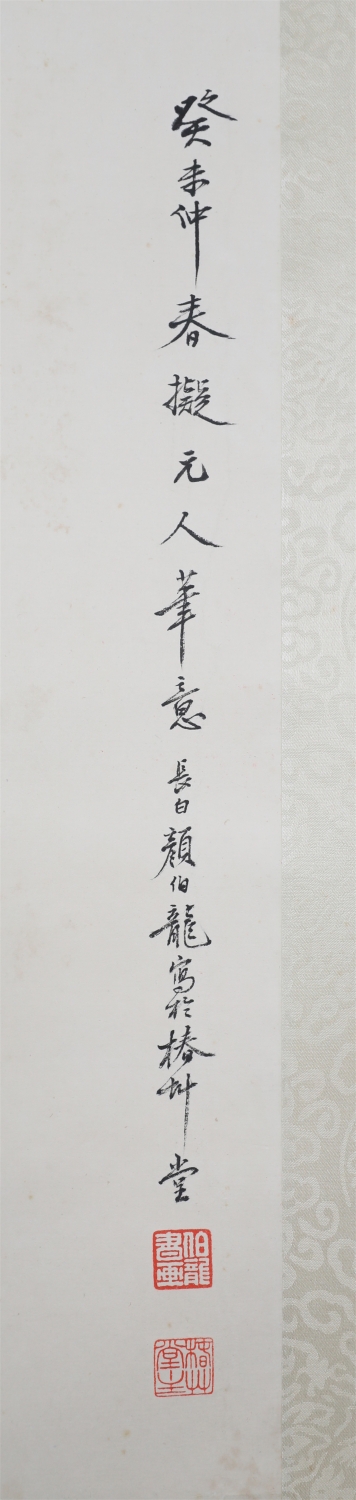 癸未仲春擬元人筆意長白顏伯龍寫於椿艸堂
伯龍書畫
椿艸堂主